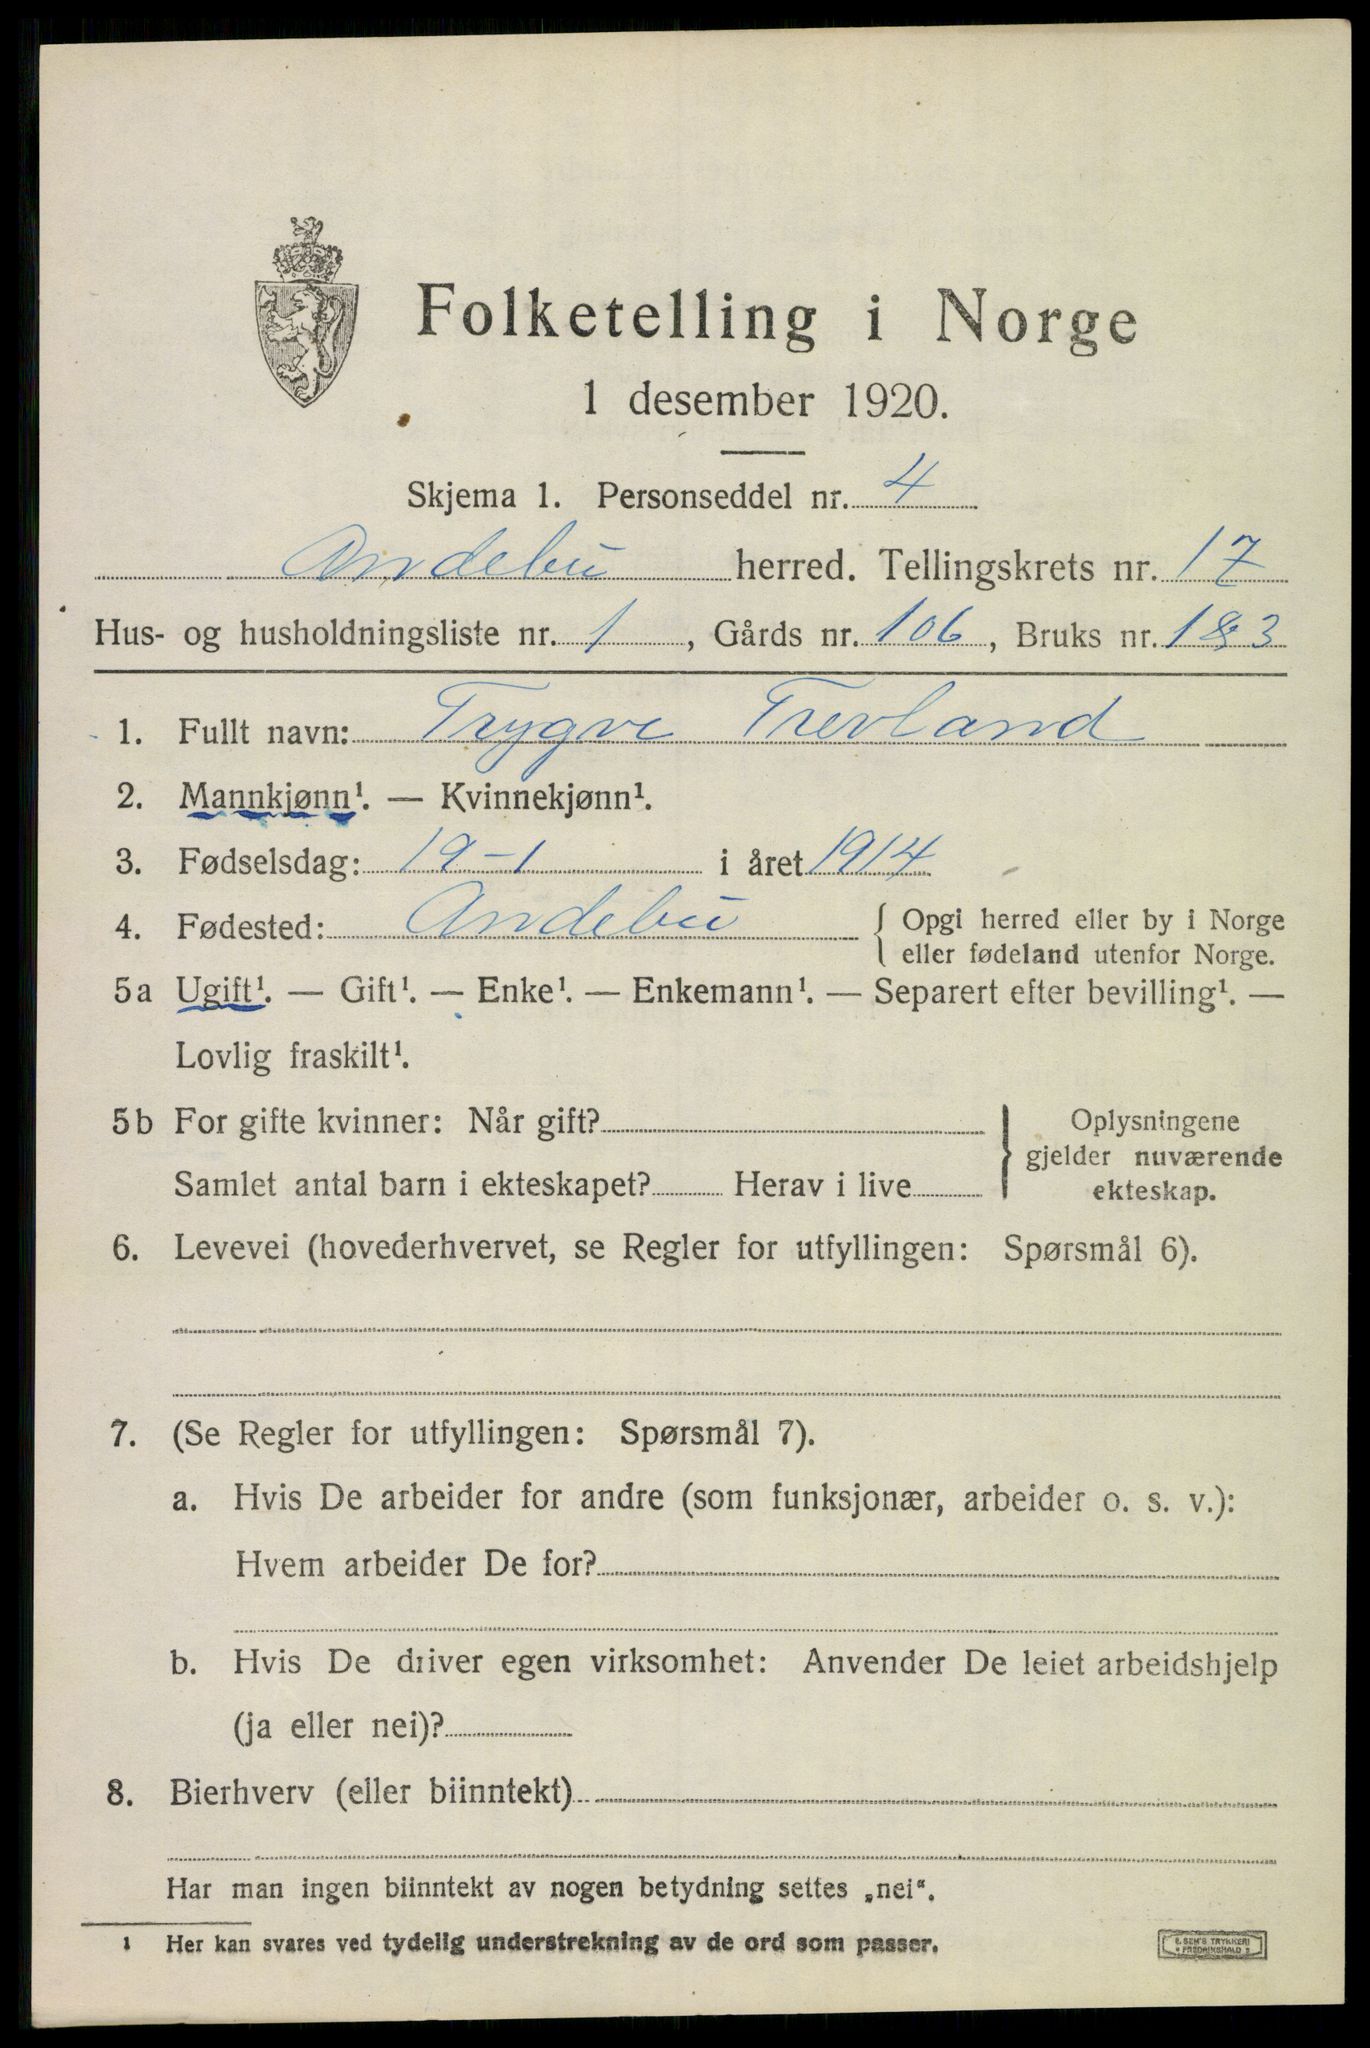 Folketelling i Norge
1 desember 1920.
Skjema 1. Personseddel nr. 4
Andebu herred. Tellingskrets nr. 17
Hus- og husholdningsliste nr. 1, Gårds nr. 106, Bruks nr. 1&3
1. Fullt navn: Trygve Trevland
2. Mannkjønn¹. — Kvinnekjønn¹.
3. Fødselsdag: 19-1 i året 1914
4. Fødested: Andebu { Opgi herred eller by i Norge
eller fødeland utenfor Norge.
5a Ugift¹. — Gift¹. — Enke¹. — Enkemann¹. — Separert efter bevilling¹. —
Lovlig fraskilt¹.
5b For gifte kvinner: Når gift?
Samlet antal barn i ekteskapet? Herav i live
} Oplysningene
gjelder nuværende
ekteskap.
6. Levevei (hovederhvervet, se Regler for utfyllingen: Spørsmål 6).
7. (Se Regler for utfyllingen: Spørsmål 7).
a. Hvis De arbeider for andre (som funksjonær, arbeider o. s. v.):
Hvem arbeider De for?
b. Hvis De driver egen virksomhet: Anvender De leiet arbeidshjelp
(ja eller nei)?
8. Bierhverv (eller biinntekt)
Har man ingen biinntekt av nogen betydning settes „nei“.
1 Her kan svares ved tydelig understrekning av de ord som passer.
E. SEM'S TRYKKERI
FREDRIKSHALD